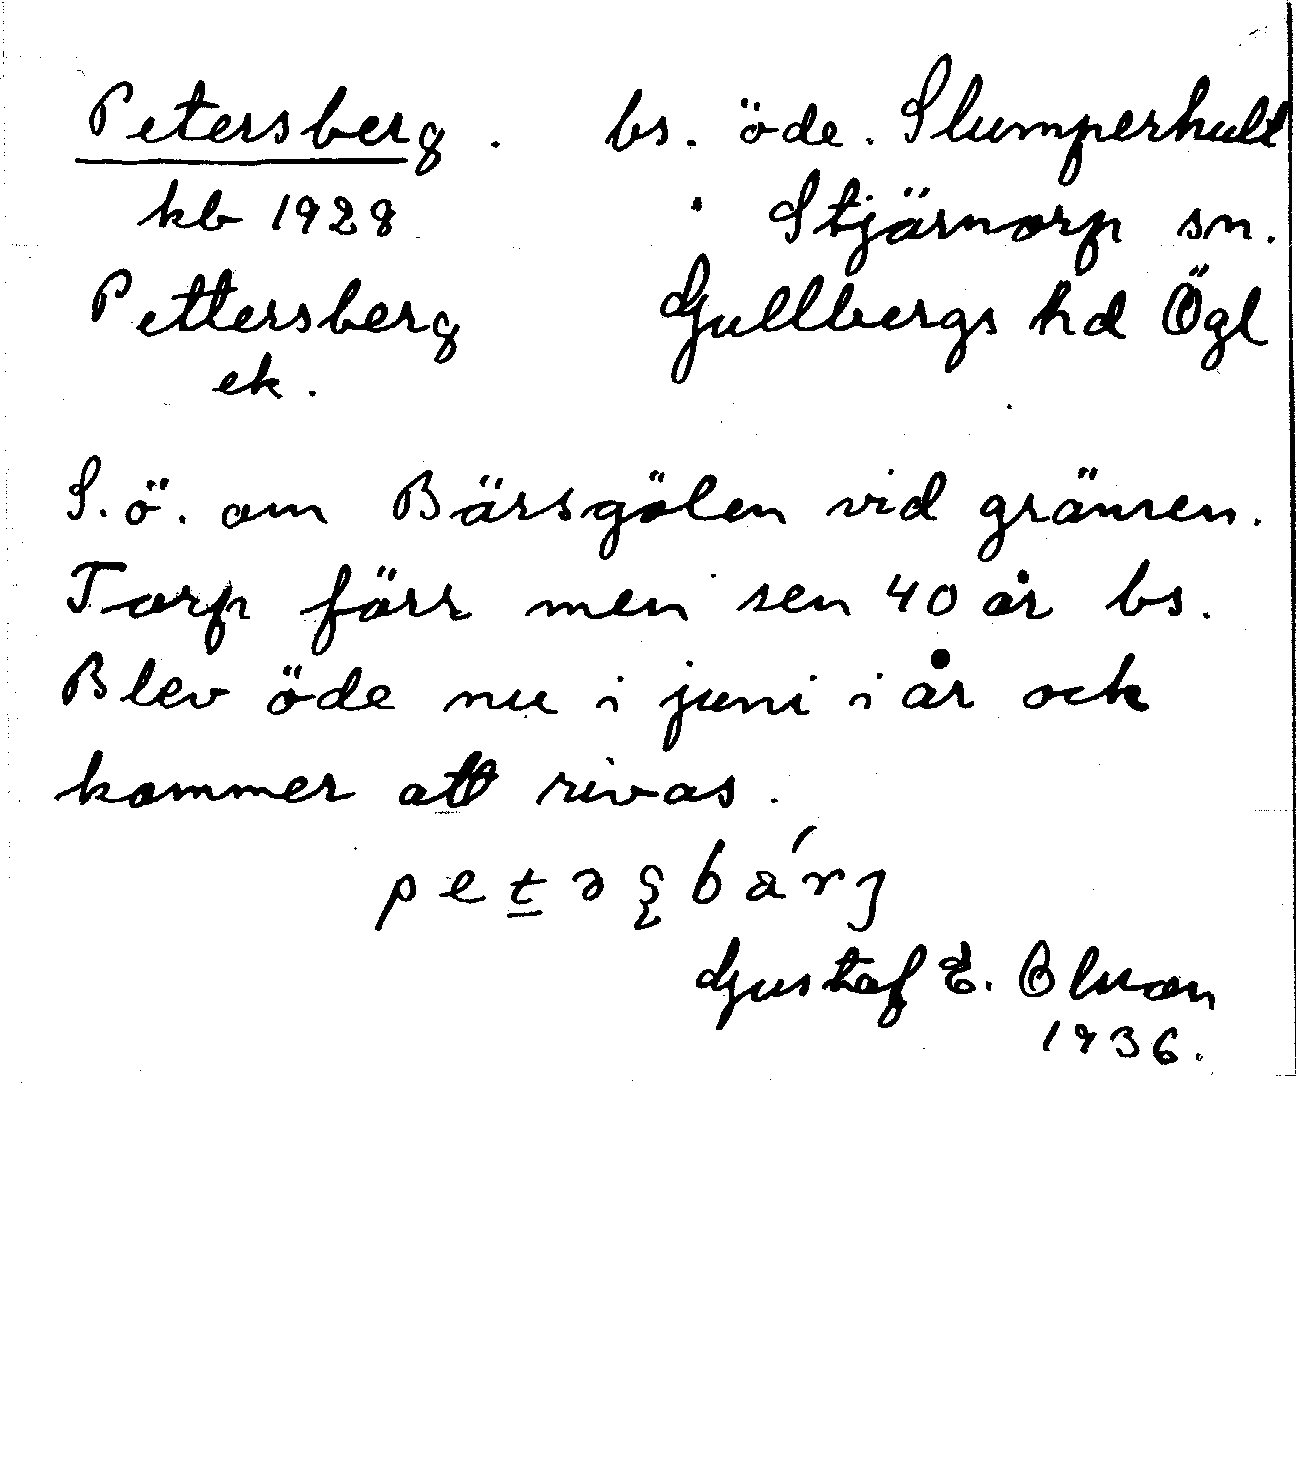 Petersberg. bs. öde. Slumperhult
kb 1928 Stjärnorp sn.
Pettersberg Gullbergs hd Ögl
ek.
S.ö. om Bärsgölen vid gränsen.
Torp förr men sen 40 år bs.
Blev öde nu i juni i år ock
kommer att rivas.
Gustaf E. Olsson
1936.